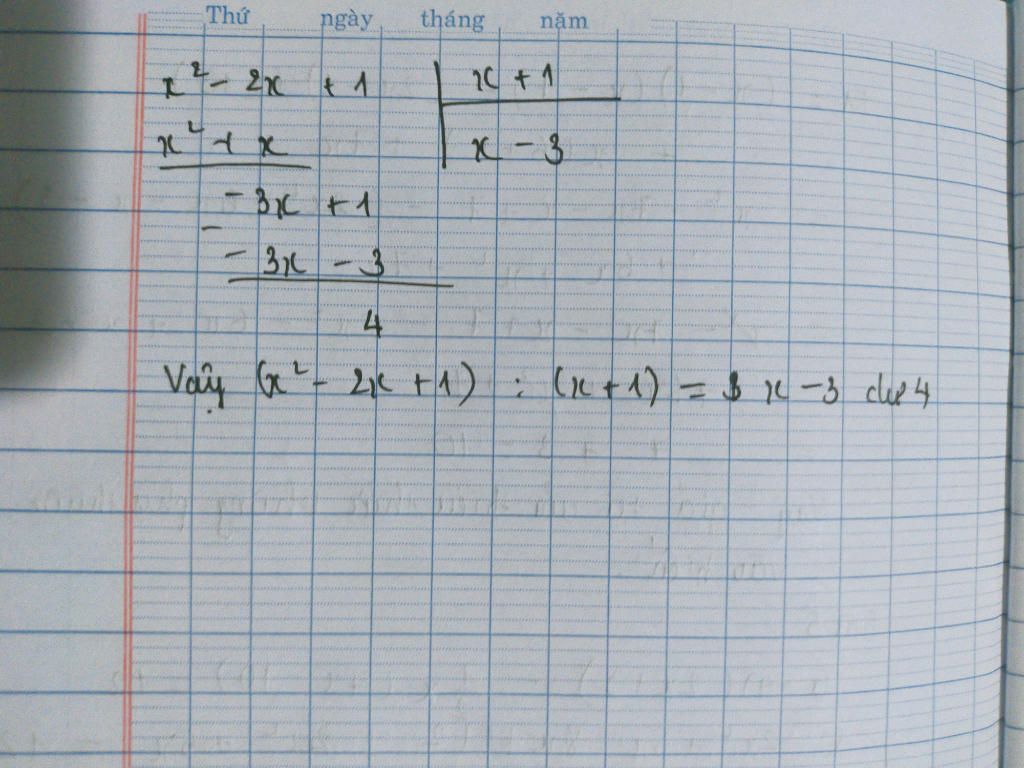 Thứ ngày tháng năm
x² - 2x + 1 | x + 1
x² + x | x - 3
- 3x + 1
-
- 3x - 3
4
Vậy (x² - 2x + 1) : (x + 1) = x - 3 dư 4